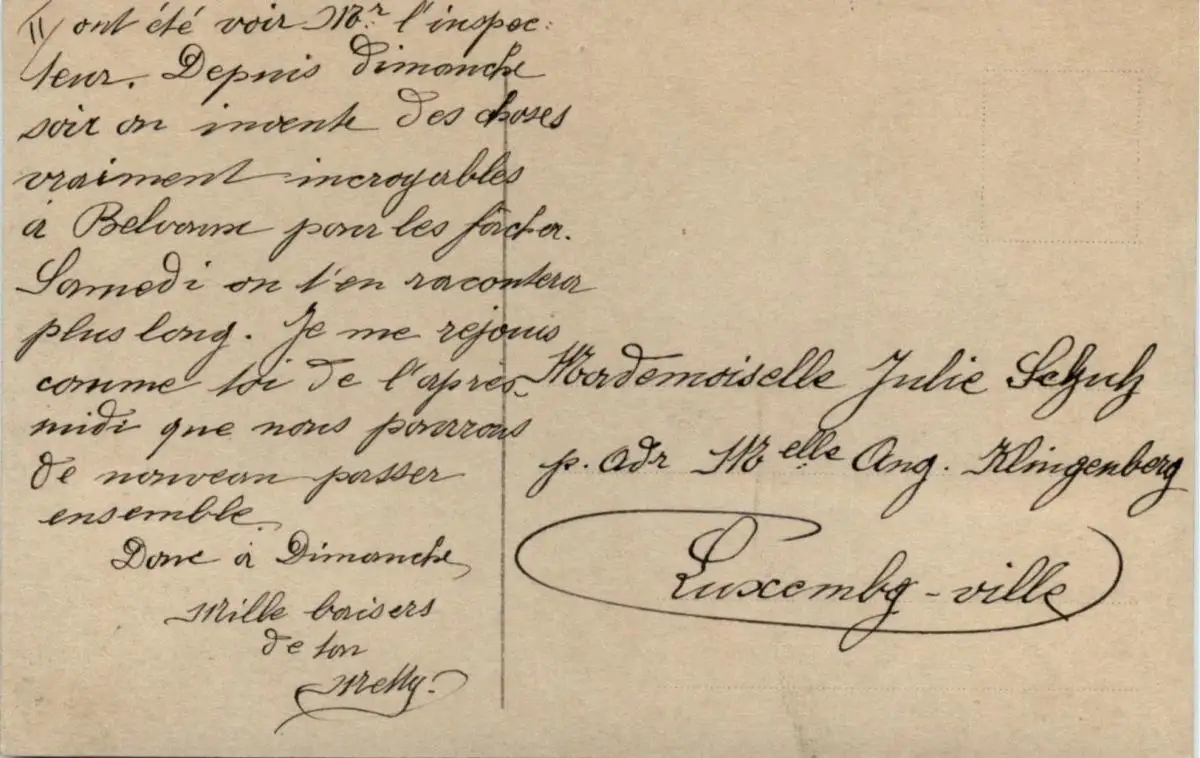 II/ ont été voir Mr l'inspec:
teur. Depuis dimanche
soir on invente des choses
vraiment incroyables
à Belvaux pour les fâcher.
Samedi on t'en racontera
plus long. Je me rejouis
comme toi de l'après-
midi que nous pourrons
de nouveau passer
ensemble.
Donc à Dimanche
Mille baisers
de ton
Metty.
Mademoiselle Julie Schulz
p. adr Melle Ang. Klingenberg
Luxembg-ville